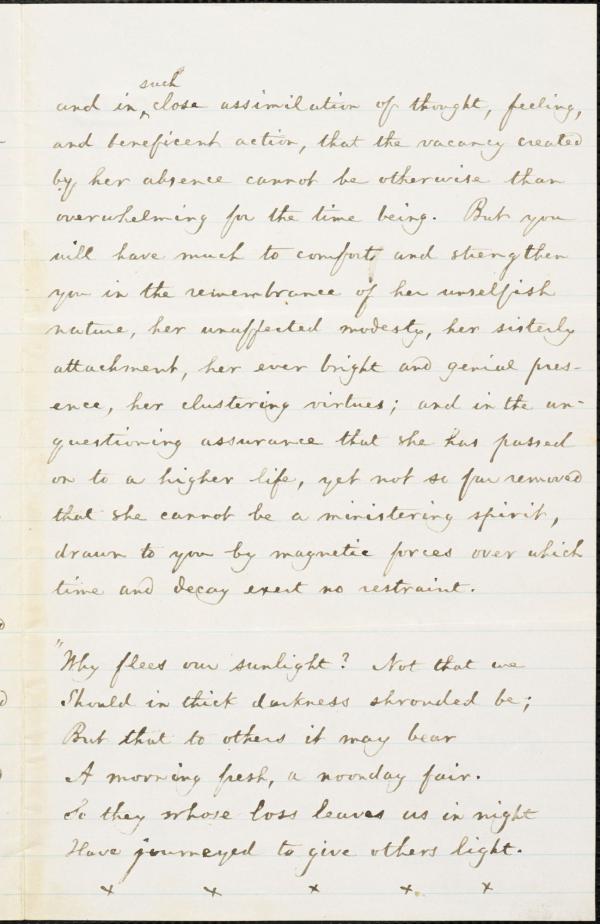 and in such close assimilation of thought, feeling,
and beneficent action, that the vacancy created
by her absence cannot be otherwise than
overwhelming for the time being. But you
will have much to comfort and strengthen
you in the remembrance of her unselfish
nature, her unaffected modesty, her sisterly
attachment, her ever bright and genial pres-
ence, her clustering virtues; and in the un-
questioning assurance that she has passed
on to a higher life, yet not so far removed
that she cannot be a ministering spirit,
drawn to you by magnetic forces over which
time and decay exert no restraint.
"Why flees our sunlight? Not that we
Should in thick darkness shrouded be;
But that to others it may bear
A morning fresh, a noonday fair.
So they whose loss leaves us in night
Have journeyed to give others light.
x x x x x